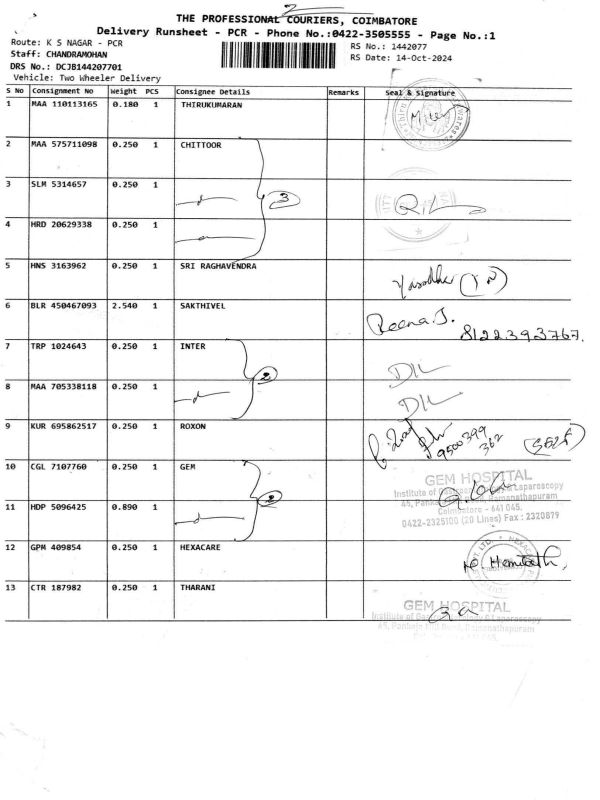 2
THE PROFESSIONAL COURIERS, COIMBATORE
Delivery Runsheet - PCR - Phone No.:0422-3505555 - Page No.:1
Route: K S NAGAR - PCR RS No.: 1442077
Staff: CHANDRAMOHAN RS Date: 14-Oct-2024
DRS No.: DCJB144207701
Vehicle: Two Wheeler Delivery
S No Consignment No Weight PCS Consignee Details Remarks Seal & Signature
1 MAA 110113165 0.180 1 THIRUKUMARAN
2 MAA 575711098 0.250 1 CHITTOOR
3 SLM 5314657 0.250 1 3
4 HRD 20629338 0.250 1
5 HNS 3163962 0.250 1 SRI RAGHAVENDRA Yasodha
6 BLR 450467093 2.540 1 SAKTHIVEL Reena.J. 8122393767.
7 TRP 1024643 0.250 1 INTER
8 MAA 705338118 0.250 1 2
9 KUR 695862517 0.250 1 ROXON 9500399
362
10 CGL 7107760 0.250 1 GEM GEM HOSPITAL
Institute of Gastroenterology & Laparoscopy
45, Pankaja Mill Road, Ramanathapuram
Coimbatore - 641 045.
0422-2325100 (20 Lines) Fax : 2320879
11 HDP 5096425 0.890 1 2
12 GPM 409854 0.250 1 HEXACARE
13 CTR 187982 0.250 1 THARANI GEM HOSPITAL
Institute of Gastroenterology & Laparoscopy
45, Pankaja Mill Road, Ramanathapuram